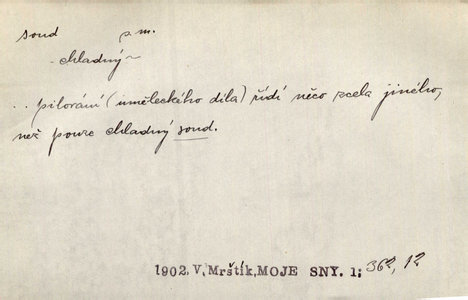 soud m.
- chladný ~
.. pilování (uměleckého díla) řídí něco zcela jiného,
než pouze chladný soud.
1902 V. Mrštík, MOJE SNY. 1; 362, 12